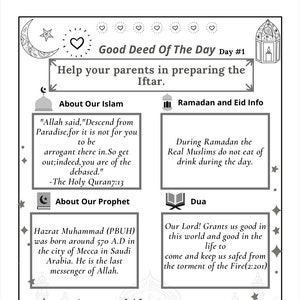 Good Deed Of The Day Day #1
Help your parents in preparing the
Iftar.
About Our Islam
"Allah said,"Descend from
Paradise,for it is not for you
to be
arrogant there in.So get
out;indeed,you are of the
debased."
-The Holy Quran7:13
Ramadan and Eid Info
During Ramadan the
Real Muslims do not eat of
drink during the day.
About Our Prophet
Hazrat Muhammad (PBUH)
was born around 570 A.D in
the city of Mecca in Saudi
Arabia. He is the last
messenger of Allah.
Dua
Our Lord! Grants us good in
this world and good in the
life to
come and keep us safed from
the torment of the Fire(2:201)